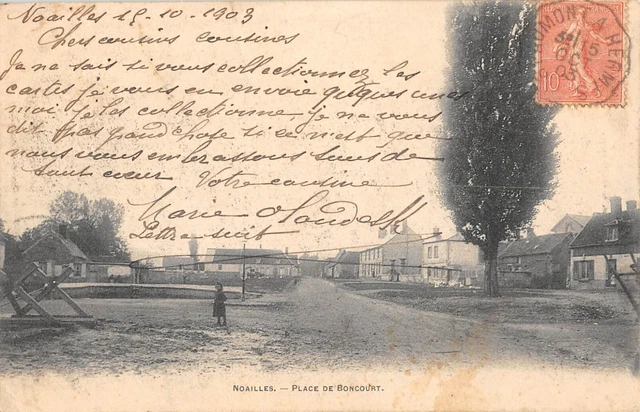 Noailles 15-10-1903
Chers cousins cousines
Je ne sais si vous collectionnez les
cartes je vous en envoie quelques unes
moi je les collectionne je ne vous
dit pas grand chose si ce n'est que
nous vous embrassons tous de
tout cœur Votre cousine
Marie
Lettre suit
10
OC
03
NOAILLES. — PLACE DE BONCOURT.